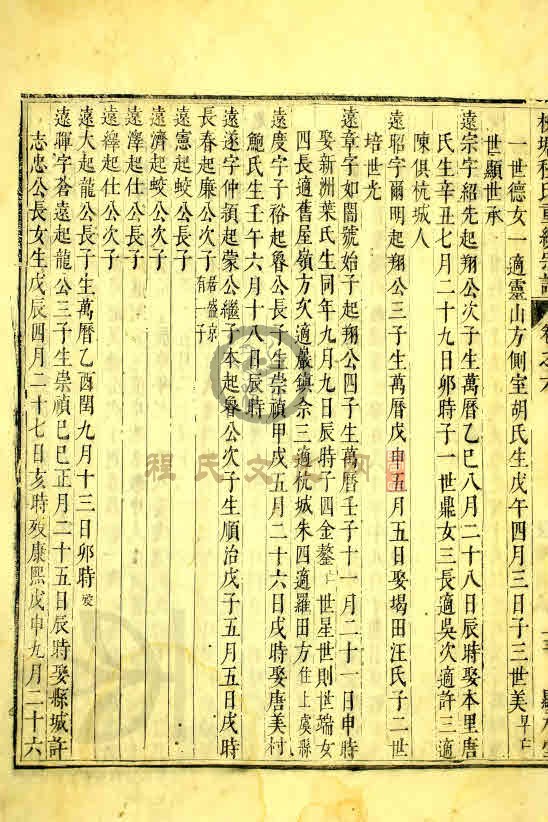 城程氏重
卷之六
一世德女一適靈山方側室胡氏生戊午四月三日子三世美早亡
世顯世承
遠宗字紹先起翔公次子生萬曆乙巳八月二十八日辰時娶本里唐
氏生辛丑七月二十九日卯時子一世鼎女三長適吳次適許三適
陳俱杭城人
遠昭字爾明起翔公三子生萬曆戊申五月五日娶堨田汪氏子二世
培世光
遠章字如闇號始子起翔公四子生萬曆壬子十一月二十一日申時
娶新洲葉氏生同年九月九日辰時子四金鏊亡世星世則世端女
四長適舊屋嶺方次適巖鎮佘三適杭城朱四適羅田方住上虞縣
遠度字子裕起魯公長子生崇禎甲戌五月二十六日戌時娶唐美村
鮑氏生壬午六月十八日辰時
遠遂字仲領起蒙公繼子本起魯公次子生順治戊子五月五日戌時
長春起廉公次子居盛京有一子
遠憲起蛟公長子
遠濟起蛟公次子
遠澤起仕公長子
遠繹起仕公次子
遠大起龍公長子生萬曆乙酉閏九月十三日卯時殀
遠暉字蒼遠起龍公三子生崇禎己巳正月二十五日辰時娶縣城許
志忠公長女生戊辰四月二十七日亥時歿康熙戊申九月二十六
程氏文化網